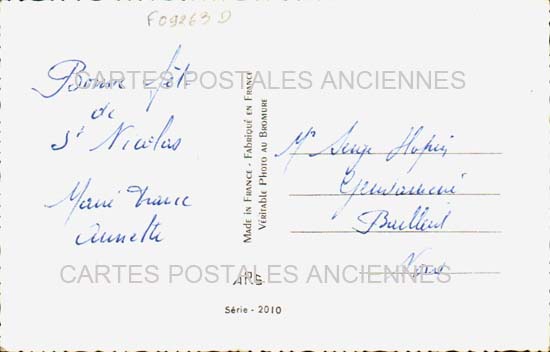 F09263 D
Bonne fête
de
St Nicolas
Marie France
Annette
CARTES POSTALES ANCIENNES
MADE IN FRANCE - FABRIQUÉ EN FRANCE
VÉRITABLE PHOTO AU BROMURE
Mr Serge
Gendarmerie
Bailleul
Nord
CARTES POSTALES ANCIENNES
ARS
Série - 2010